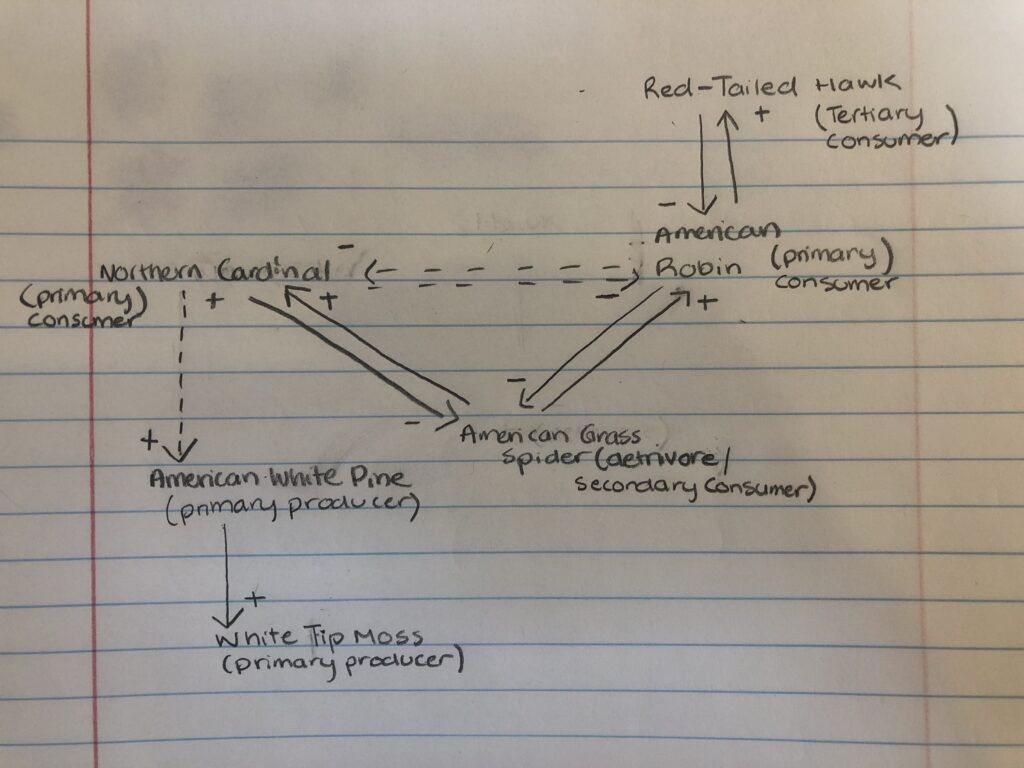 Red-Tailed Hawk
+ (Tertiary
consumer)
-
American
Robin (primary)
consumer
-
Northern Cardinal
(primary)
consumer
+ +
- +
-
-
American Grass
Spider (detrivore/
secondary consumer)
+
American White Pine
(primary producer)
+
White Tip Moss
(primary producer)